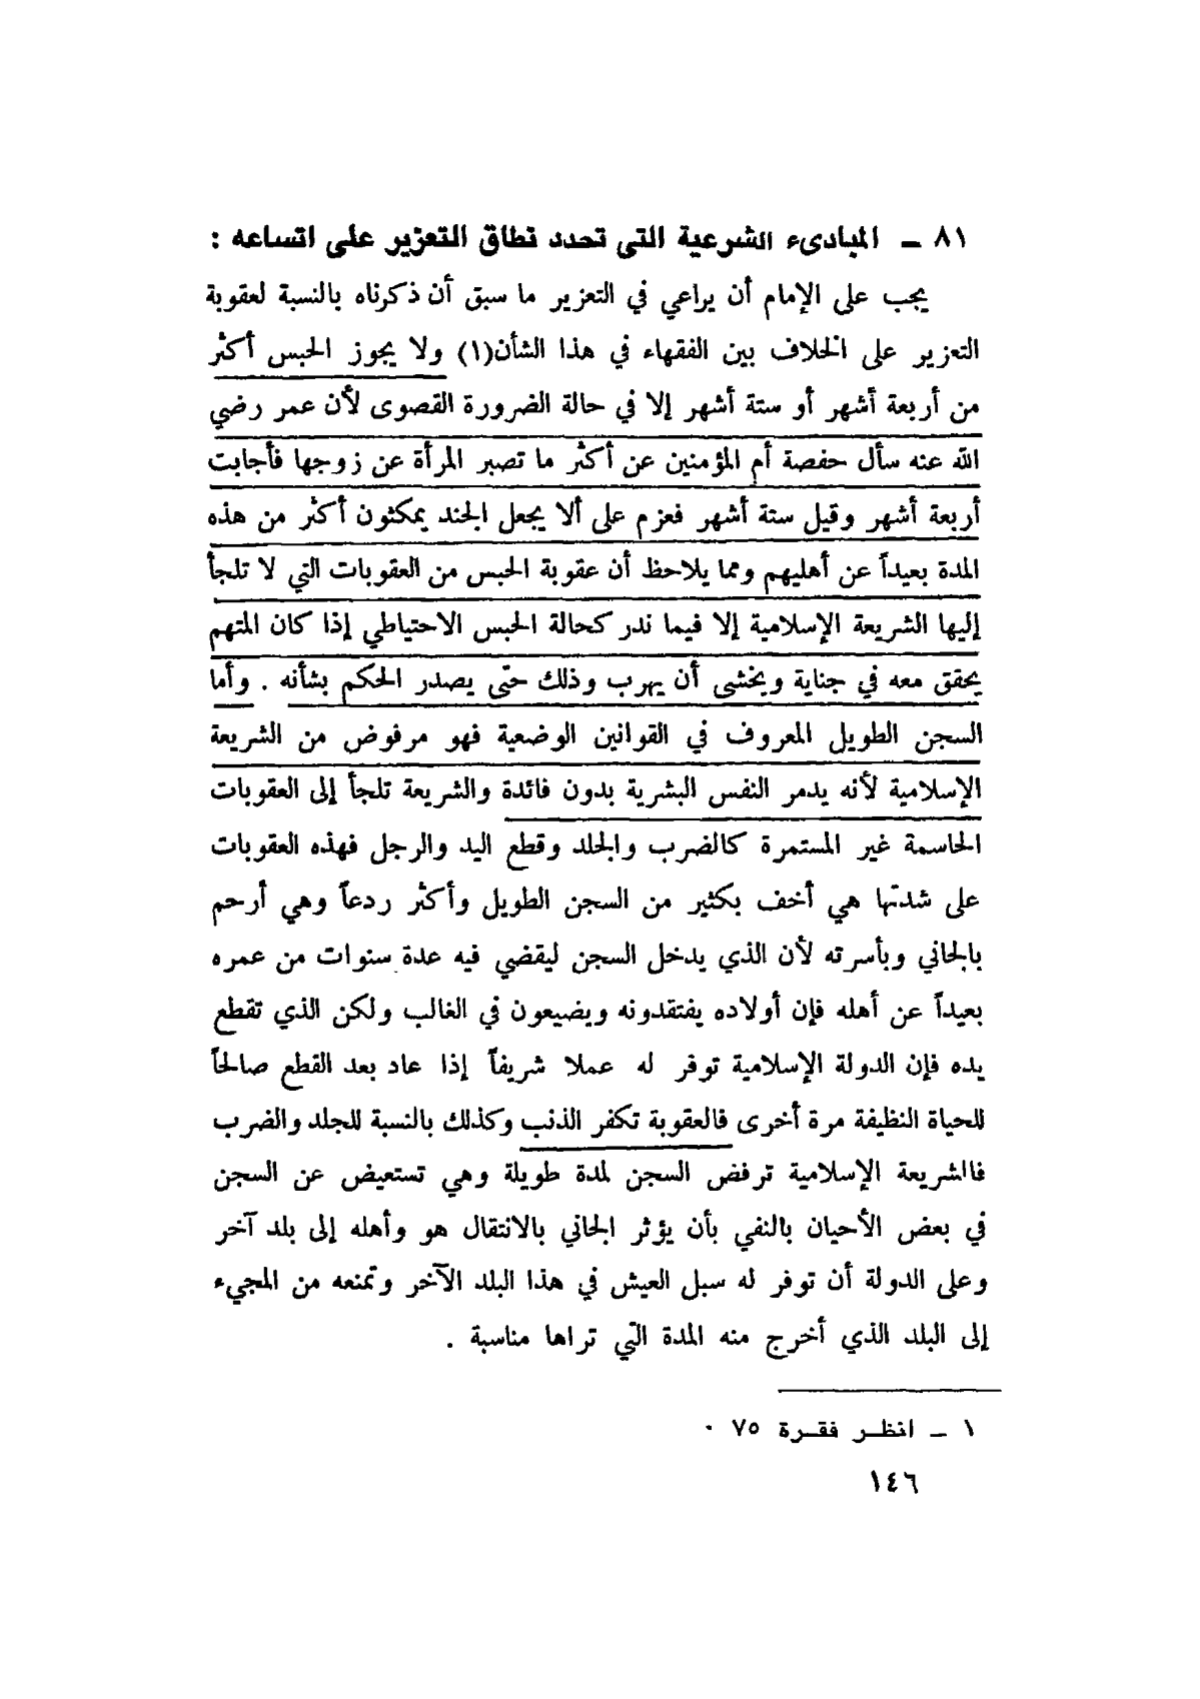 ٨١ ــ المبادىء الشرعية التي تحدد نطاق التعزير على اتساعه :
يجب على الإمام أن يراعي في التعزير ما سبق أن ذكرناه بالنسبة لعقوبة
التعزير على الخلاف بين الفقهاء في هذا الشأن(١) ولا يجوز الحبس أكثر
من أربعة أشهر أو ستة أشهر إلا في حالة الضرورة القصوى لأن عمر رضي
الله عنه سأل حفصة أم المؤمنين عن أكثر ما تصبر المرأة عن زوجها فأجابت
أربعة أشهر وقيل ستة أشهر فعزم على ألا يجعل الجند يمكثون أكثر من هذه
المدة بعيداً عن أهليهم ومما يلاحظ أن عقوبة الحبس من العقوبات التي لا تلجأ
إليها الشريعة الإسلامية إلا فيما ندر كحالة الحبس الاحتياطي إذا كان المتهم
يحقق معه في جناية ويخشى أن يهرب وذلك حتى يصدر الحكم بشأنه . وأما
السجن الطويل المعروف في القوانين الوضعية فهو مرفوض من الشريعة
الإسلامية لأنه يدمر النفس البشرية بدون فائدة والشريعة تلجأ إلى العقوبات
الحاسمة غير المستمرة كالضرب والجلد وقطع اليد والرجل فهذه العقوبات
على شدتها هي أخف بكثير من السجن الطويل وأكثر ردعاً وهي أرحم
بالجاني وبأسرته لأن الذي يدخل السجن ليقضي فيه عدة سنوات من عمره
بعيداً عن أهله فإن أولاده يفتقدونه ويضيعون في الغالب ولكن الذي تقطع
يده فإن الدولة الإسلامية توفر له عملا شريفاً إذا عاد بعد القطع صالحاً
للحياة النظيفة مرة أخرى فالعقوبة تكفر الذنب وكذلك بالنسبة للجلد والضرب
فالشريعة الإسلامية ترفض السجن لمدة طويلة وهي تستعيض عن السجن
في بعض الأحيان بالنفي بأن يؤثر الجاني بالانتقال هو وأهله إلى بلد آخر
وعلى الدولة أن توفر له سبل العيش في هذا البلد الآخر وتمنعه من المجيء
إلى البلد الذي أخرج منه المدة التي تراها مناسبة .
١ ــ انظر فقرة ٧٥ ٠
١٤٦